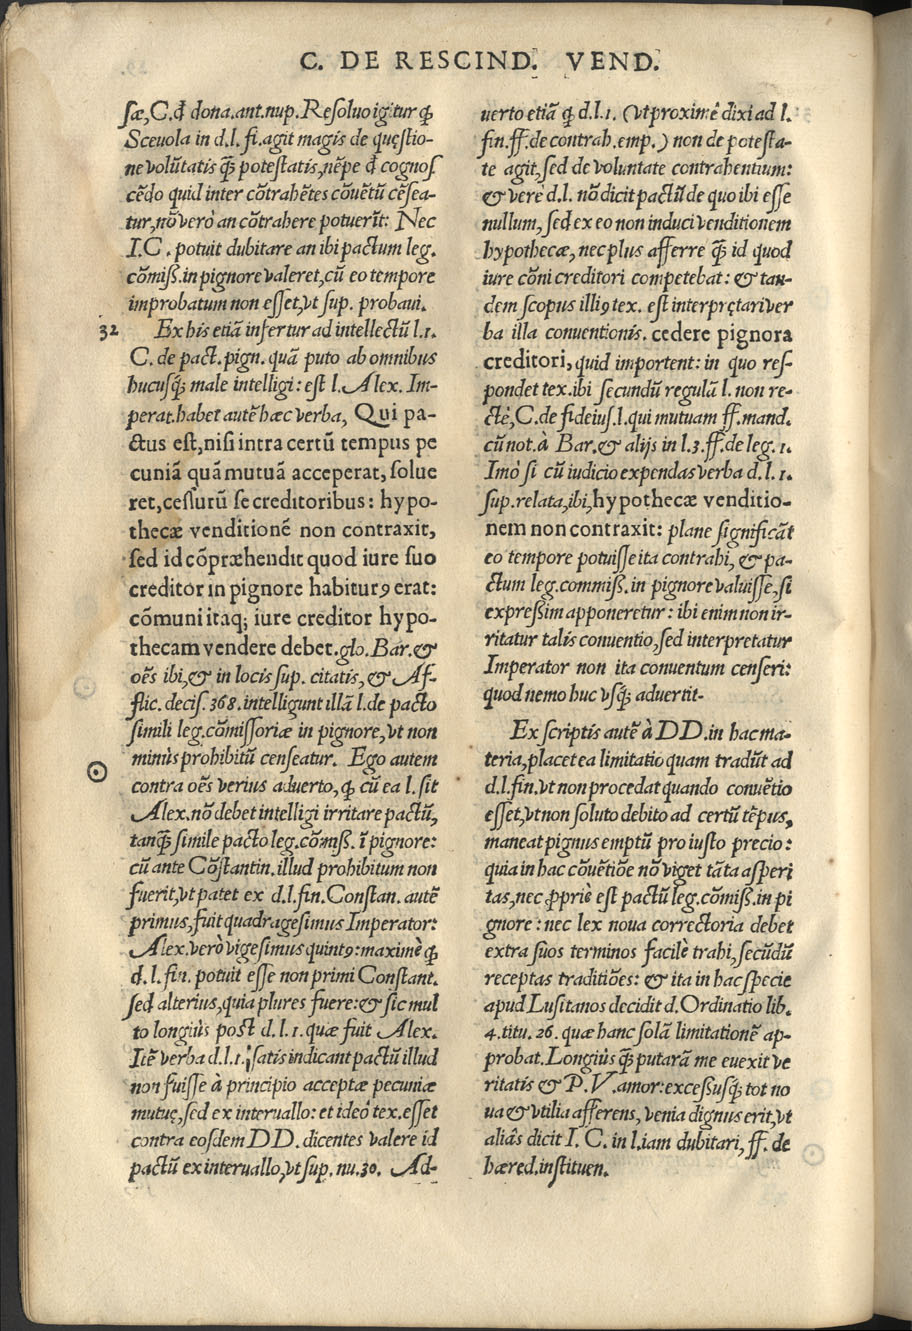 C. DE RESCIND. VEND.
sæ, C. ꝗ dona.ant.nup. Resoluo igitur ꝙ
Sceuola in d.l. fi.agit magis de quęstio-
ne volūtatis ꝗ̃ potestatis, nēpe ꝗ cognos
cēdo quid inter cōtrahētes cōuētū cēsea-
tur, nō verò an cōtrahere potuerīt: Nec
I.C. potuit dubitare an ibi pactum leg.
cōmiss.in pignore valeret, cū eo tempore
improbatum non esset, vt sup. probaui.
32 Ex his etiā infertur ad intellectū l.1.
C. de pact. pign. quā puto ab omnibus
hucusq; male intelligi: est l. Alex. Im-
perat.habet autē hæc verba, Qui pa-
ctus est, nisi intra certū tempus pe
cuniā quā mutuā acceperat, solue
ret, cessurū se creditoribus: hypo-
thecæ venditionē non contraxit,
sed id cōpræhendit quod iure suo
creditor in pignore habiturꝰ erat:
cōmuni itaq; iure creditor hypo-
thecam vendere debet.glo.Bar.&
oēs ibi, & in locis sup. citatis, & Af-
flic. decis. 368. intelligunt illā l.de pacto
simili leg.cōmissoriæ in pignore, vt non
minùs prohibitū censeatur. Ego autem
contra oēs verius aduerto, ꝙ cū ea l. sit
Alex. nō debet intelligi irritare pactū,
tanꝗ̃ simile pacto leg.cōmiss. ī pignore:
cū ante Cōstantin. illud prohibitum non
fuerit, vt patet ex d.l.fin.Constan. autē
primus, fuit quadragesimus Imperator:
Alex. verò vigesimus quintꝰ: maximè ꝙ
d.l.fin. potuit esse non primi Constant.
sed alterius, quia plures fuere: & sic mul
to longiùs post d.l.1. quæ fuit Alex.
Itē verba d.l.1. satis indicant pactū illud
non fuisse à principio acceptæ pecuniæ
mutuę, sed ex interuallo: et ideò tex.esset
contra eosdem DD. dicentes valere id
pactū ex interuallo, vt sup. nu.30. Ad-
uerto etiā ꝙ d.l.1. (vt proximè dixi ad l.
fin.ff.de contrah.emp.) non de potesta-
te agit, sed de voluntate contrahentium:
& verè d.l. nō dicit pactū de quo ibi esse
nullum, sed ex eo non induci venditionem
hypothecæ, nec plus afferre ꝗ̃ id quod
iure cōni creditori competebat: & tan-
dem scopus illiꝰ tex. est interpretari ver
ba illa conuentionis. cedere pignora
creditori, quid importent: in quo res-
pondet tex.ibi secundū regulā l. non re-
ctè, C.de fideius.l.qui mutuam ff.mand.
cū not. à Bar.& alijs in l.3.ff.de leg. 1.
Imò si cū iudicio expendas verba d.l.1.
sup.relata, ibi, hypothecæ venditio-
nem non contraxit: plane significāt
eo tempore potuisse ita contrahi, & pa-
ctum leg.commiss. in pignore valuisse, si
expressim apponeretur: ibi enim non ir-
ritatur talis conuentio, sed interpretatur
Imperator non ita conuentum censeri:
quod nemo huc vsq; aduertit.
Ex scriptis autē à DD.in hac ma-
teria, placet ea limitatio quam tradūt ad
d.l.fin.vt non procedat quando conuētio
esset, vt non soluto debito ad certū tēpus,
maneat pignus emptū pro iusto precio:
quia in hac cōuētiōe nō viget tāta asperi
tas, nec ꝓpriè est pactū leg.cōmiss.in pi
gnore: nec lex noua correctoria debet
extra suos terminos facilè trahi, secūdū
receptas traditiōes: & ita in hac specie
apud Lusitanos decidit d.Ordinatio lib.
4.titu. 26. quæ hanc solā limitationē ap-
probat. Longiùs ꝗ̃ putarā me euexit ve
ritatis & P.V. amor: excessusq; tot no
ua & vtilia afferens, venia dignus erit, vt
aliâs dicit I.C. in l.iam dubitari, ff. de
hæred.instituen.